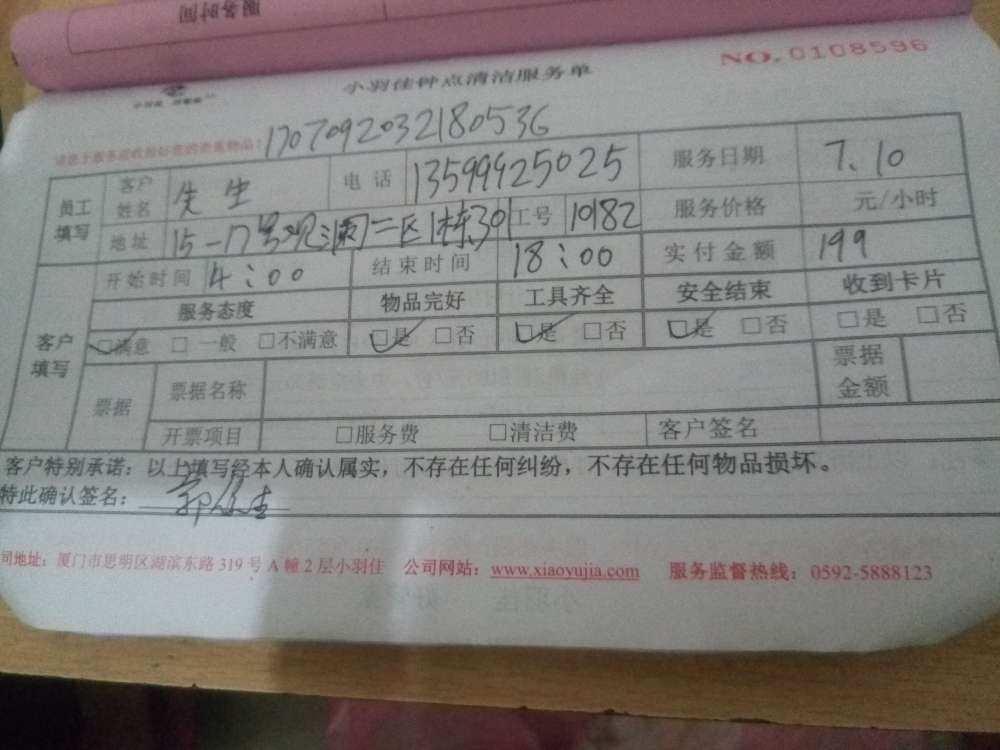 服务时间
NO.0108596
小羽佳钟点清洁服务单
请您于服务前收拾好您的贵重物品！1707092032180536
员工填写 客户姓名 先生 电话 13599925025 服务日期 7.10
地址 15-17号观澜二区1栋301 工号 10182 服务价格 元/小时
客户填写 开始时间 14:00 结束时间 18:00 实付金额 199
服务态度 物品完好 工具齐全 安全结束 收到卡片
□满意 □一般 □不满意 □是 □否 □是 □否 □是 □否 □是 □否
票据 票据名称 票据金额
开票项目 □服务费 □清洁费 客户签名
客户特别承诺：以上填写经本人确认属实，不存在任何纠纷，不存在任何物品损坏。
特此确认签名：
司地址：厦门市思明区湖滨东路 319 号 A 幢 2 层小羽佳 公司网站：www.xiaoyujia.com 服务监督热线：0592-5888123